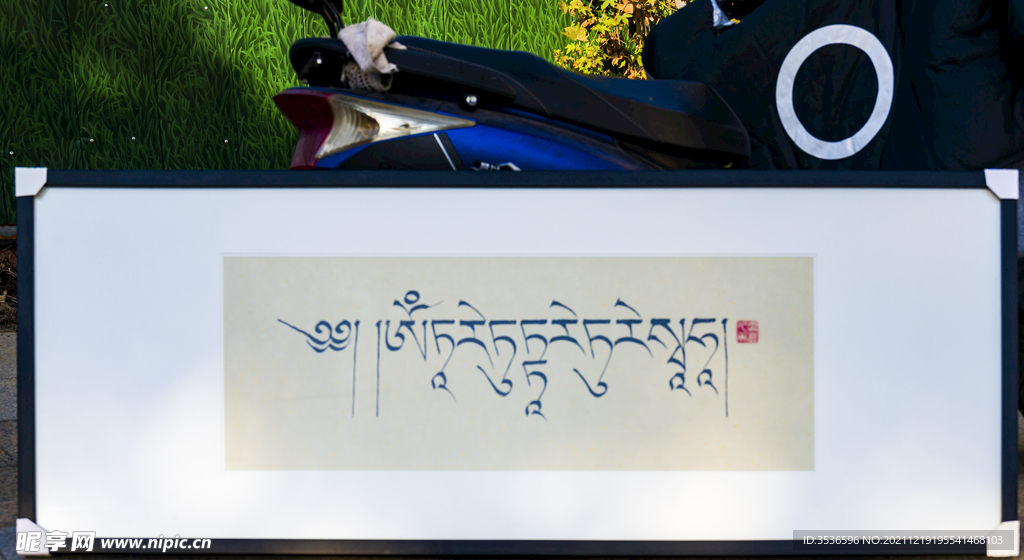 ༄༅། །ཨོཾཏཱརེཏུཏྟཱརེཏུརེསྭཱཧཱ།
昵享网 www.nipic.cn
ID:3536596 NO:20211219195541468103